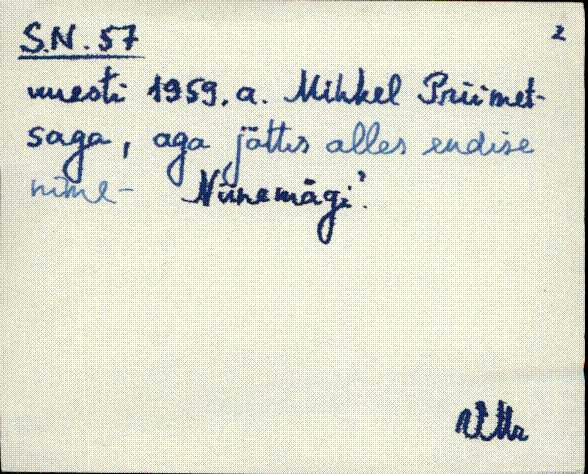 S.N. 57 2
uuesti 1959. a. Mihkel Priimet-
saga, aga jättis alles endise
nime - Niinemägi?